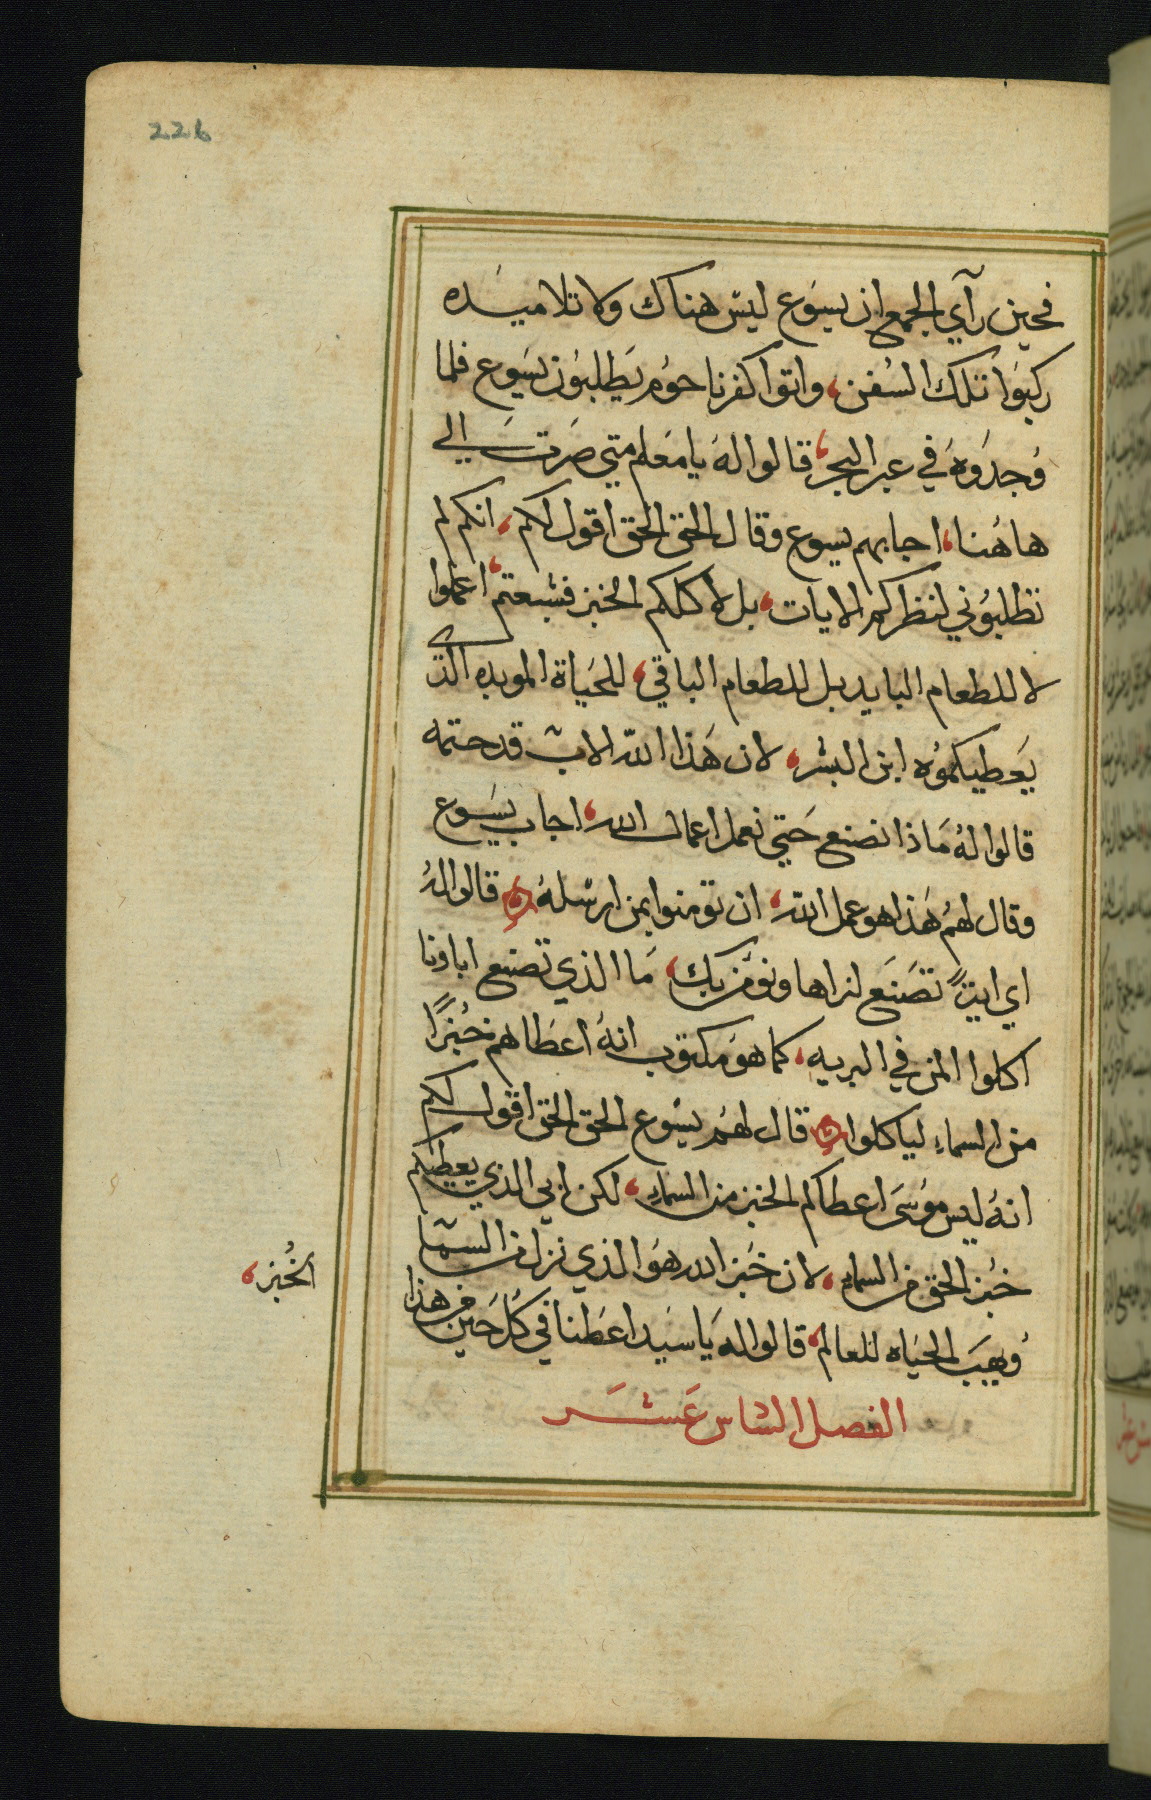 226
فحين رآي الجمع ان يسوع ليس هناك ولا تلاميده
ركبوا تلك السفن، واتوا كفرناحوم يطلبون يسوع فلما
وجدوه في عبر البحر، قالوا له يا معلم متي صرت الي
هاهنا، اجابهم يسوع وقال الحق الحق اقول لكم، انكم لم
تطلبوني لنظركم الايات، بل لاكلكم الخبز فشبعتم، اعملوا
لا للطعام البايد بل للطعام الباقي، للحياة الموبده الذي
يعطيكموه ابن البشر، لان هذا الله الاب قد ختمه
قالوا له ماذا نصنع حتي نعمل اعمال الله، اجاب يسوع
وقال لهم هذا هو عمل الله، ان تومنوا بمن ارسله قالوا له
اي ايت تصنع لنراها ونومن بك، ما الذي تصنع اباونا
اكلوا المن في البريه، كما هو مكتوب انه اعطاهم خبزًا
من السماء لياكلوا قال لهم يسوع الحق الحق اقول لكم
انه ليس موسي اعطاكم الخبز من السماء، لكن ابي الذي يعطيكم
خبز الحق من السماء، لان خبز الله هو الذي نزل من السما
ويهب الحياه للعالم، قالوا له يا سيد اعطنا في كل حين من هذا
الخبز،
الفصل السادس عشر